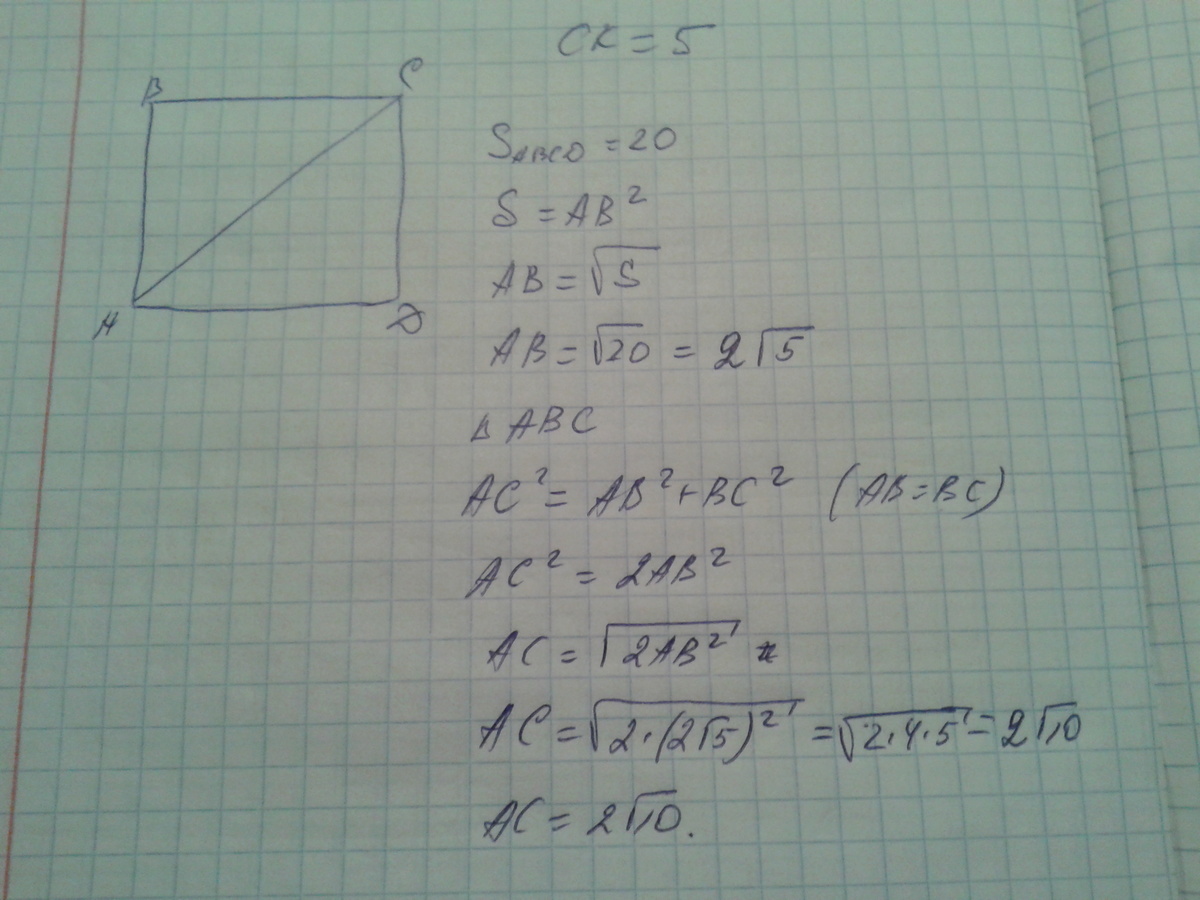 CK = 5
B
C
A
D
S ABCD = 20
S = AB²
AB = √S
AB = √20 = 2√5
Δ ABC
AC² = AB² + BC² (AB = BC)
AC² = 2AB²
AC = √2AB²
AC = √2·(2√5)² = √2·4·5 = 2√10
AC = 2√10.